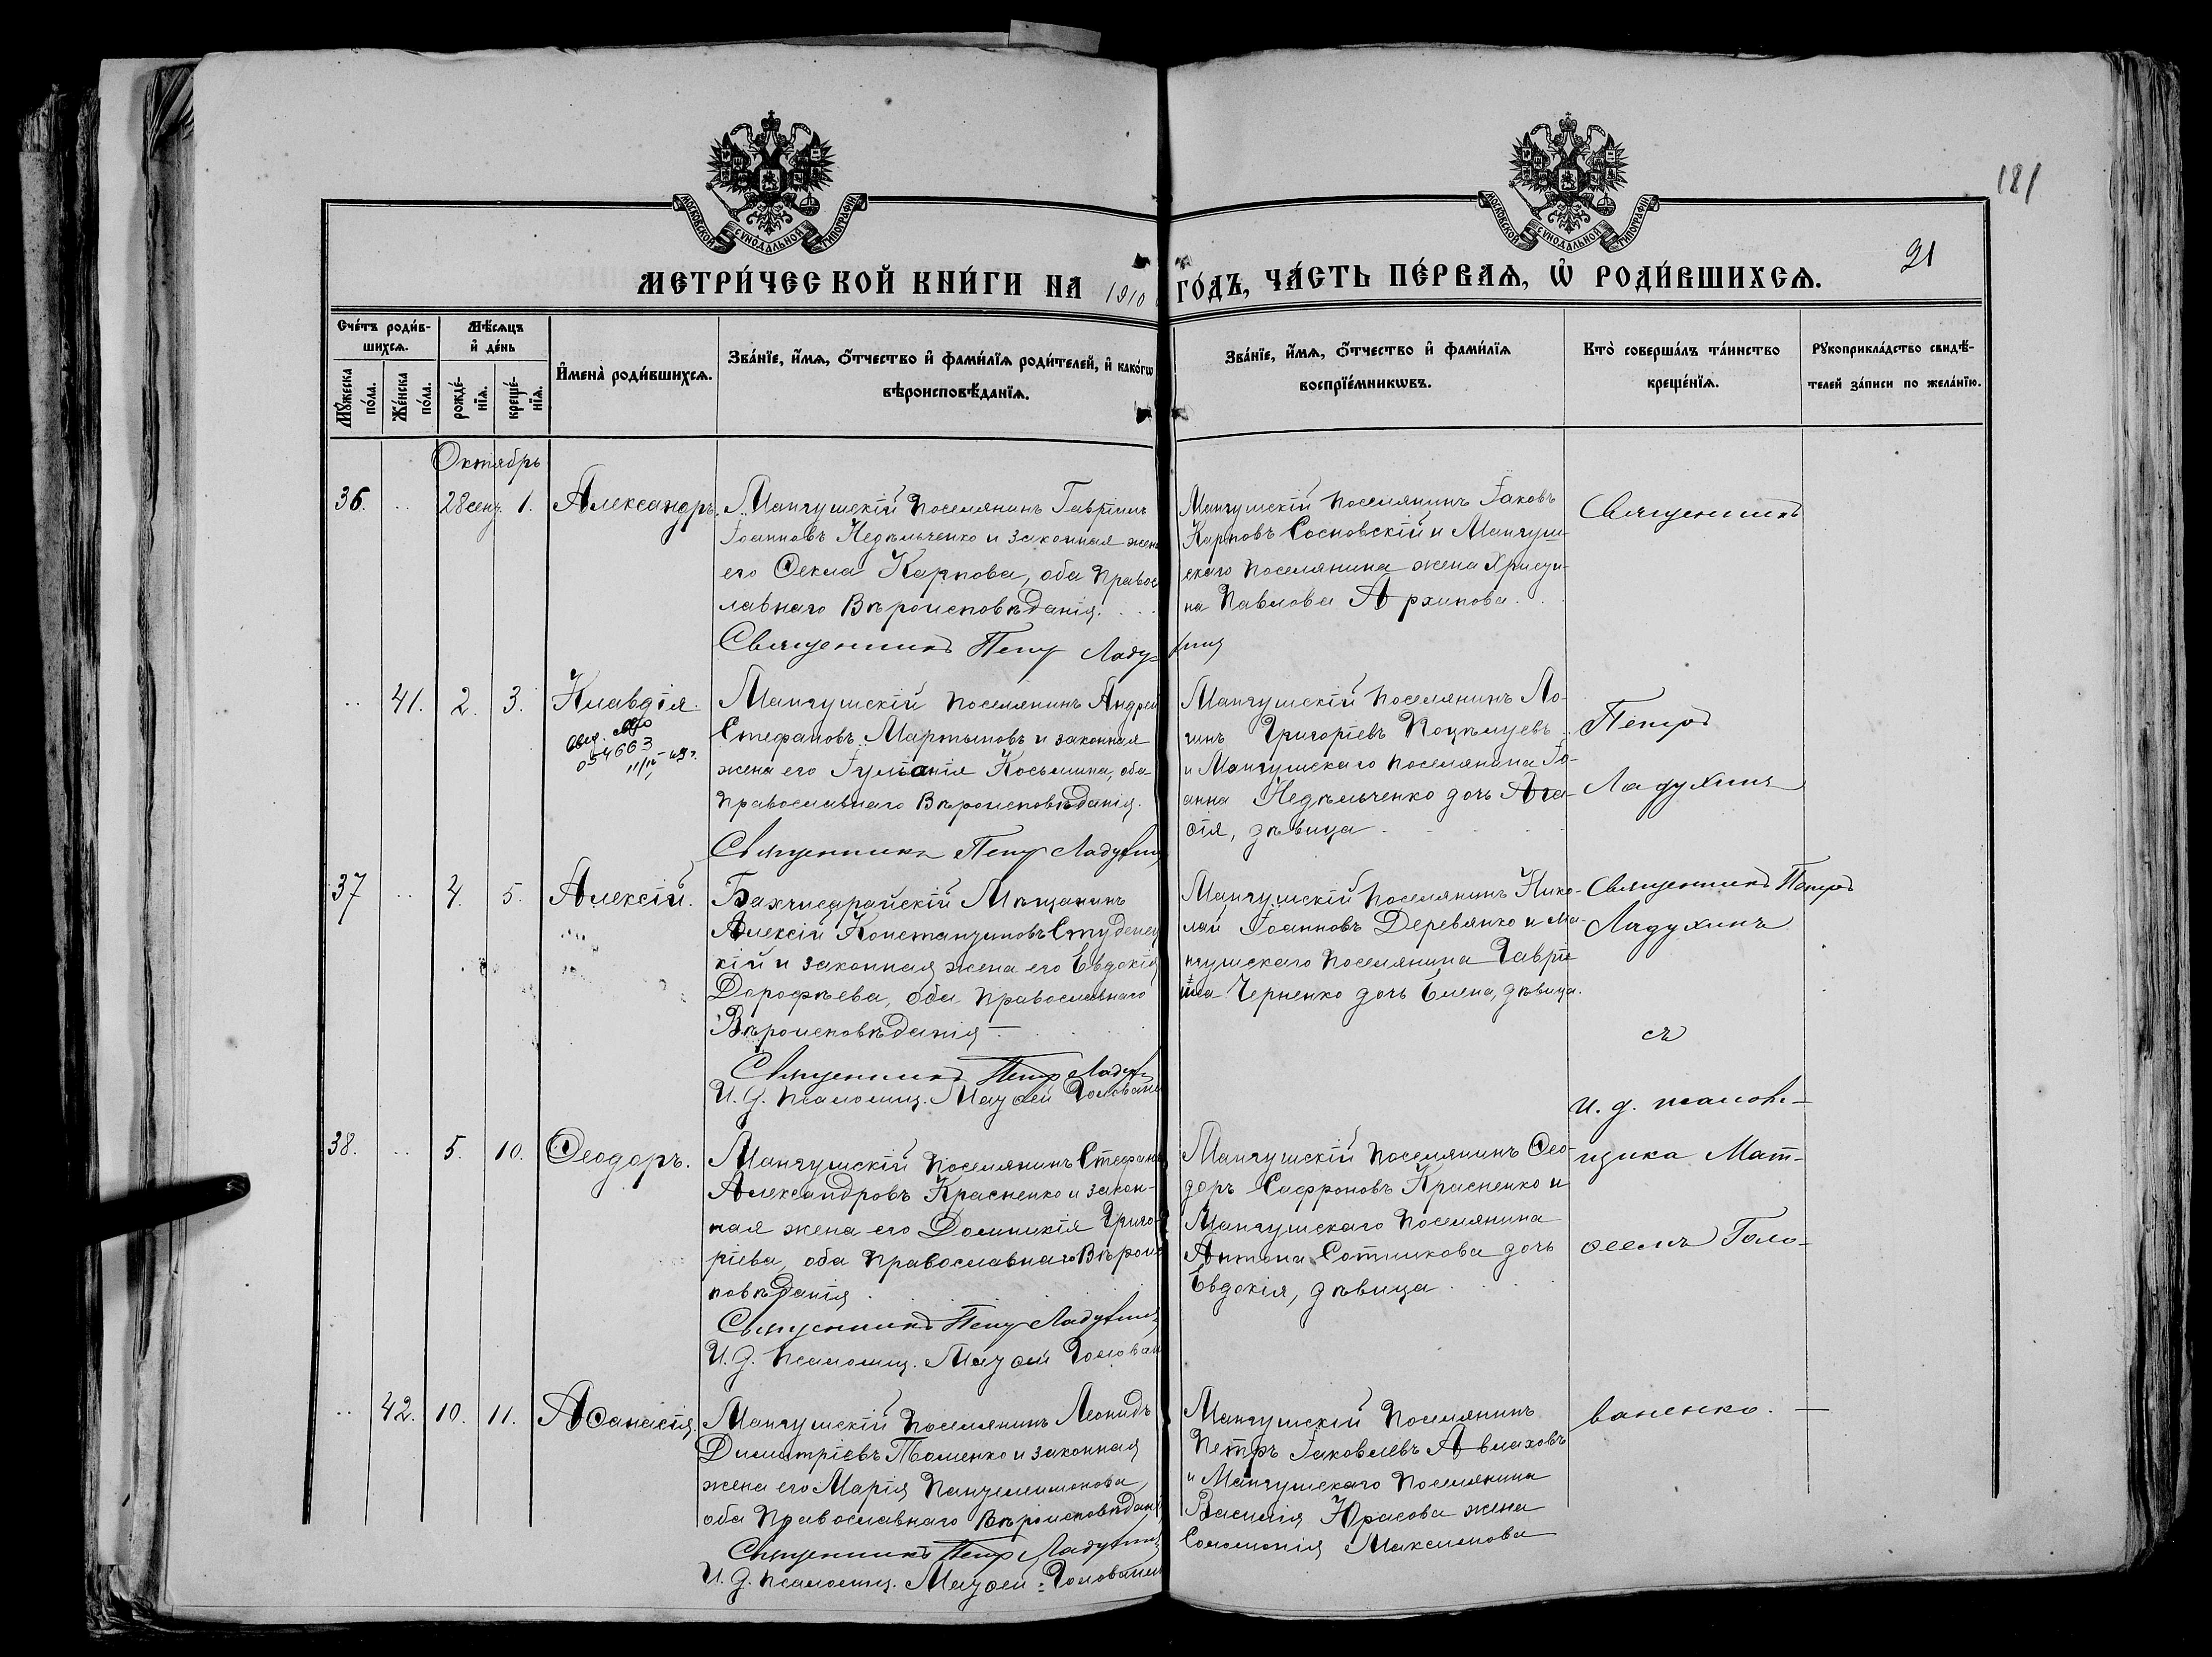 181
МОСКОВСКОЙ СѴНОДАЛЬНОЙ ТИПОГРАФІИ
МОСКОВСКОЙ СѴНОДАЛЬНОЙ ТИПОГРАФІИ
МЕТРИ́ЧЕСКОЙ КНИ́ГИ НА 1910 ГО́ДЪ, ЧА́СТЬ ПЕ́РВАѦ, Ѡ҆ РОДИ́ВШИХСѦ.
21
Сче́тъ роди́в-
шихсѧ.
Мꙋ́жеска по́ла.
Же́нска по́ла.
Мѣ́сѧцъ
и҆ де́нь
рожде́-
нїѧ.
креще́-
нїѧ.
И҆мена̀ роди́вшихсѧ.
Зва́нїе, и҆́мѧ, ѻ҆́тчество и҆ фами́лїѧ роди́телей, и҆ како́гѡ
вѣроисповѣ́данїѧ.
Зва́нїе, и҆́мѧ, ѻ҆́тчество и҆ фами́лїѧ
воспрїе́мникѡвъ.
Кто̀ соверша́лъ та́инство
креще́нїѧ.
Рꙋкоприкла́дство свидѣ́-
телей за́писи по жела́нїю.
Октябрь
36. 28 сент. 1. Александръ.
Мангушскій поселянинъ Гавріилъ
Іоанновъ Недѣльченко и законная жена
его Ѳекла Карпова, оба Правос
лавнаго Вѣроисповѣданія.
Священникъ Петръ Ладухинъ
Мангушскій поселянинъ Іаковъ
Карповъ Сосновскій и Мангуш-
скаго поселянина жена Христи-
на Павлова Архипова.
Священникъ
41. 2. 3. Клавдія.
054663
Мангушскій поселянинъ Андрей
Стефановъ Мартыновъ и законная
жена его Іуліанія Косьмина, оба
Православнаго Вѣроисповѣданія.
Священникъ Петръ Ладухинъ
Мангушскій поселянинъ Ло-
гинъ Григоріевъ Поцѣлуевъ
и Мангушскаго поселянина Іо-
анна Недѣльченко дочь Ага-
ѳія, дѣвица
Петръ
Ладухинъ
37 4. 5. Алексій.
Бахчисарайскій Мѣщанинъ
Алексій Константиновъ Студенец
кій и законная жена его Евдокія
Дороѳѣева, оба Православнаго
Вѣроисповѣданія
Священникъ Петръ Ладухинъ
И. д. псаломщ. Матѳей Голованен
Мангушскій поселянинъ Нико-
лай Іоанновъ Деревянко и Ма-
нгушскаго поселянина Гаврі
ила Черненко дочь Елена, дѣвица.
Священникъ Петръ
Ладухинъ
съ
и. д. псалом-
38. 5. 10. Ѳеодоръ.
Мангушскій поселянинъ Стефанъ
Александровъ Красненко и закон-
ная жена его Домникія Григо-
ріева, оба Православнаго Вѣроис
повѣданія
Священникъ Петръ Ладухинъ
И. д. псаломщ. Матѳей Голован
Мангушскій поселянинъ Ѳео-
доръ Сафроновъ Красненко и
Мангушскаго поселянина
Антона Сотникова дочь
Евдокія, дѣвица
щика Мат-
ѳеемъ Голо-
42. 10. 11. Аѳанасія.
Мангушскій поселянинъ Леонидъ
Димитріевъ Томенко и законная
жена его Марія Пантелеимонова
оба Православнаго Вѣроисповѣдані
Священникъ Петръ Ладухинъ
И. д. псаломщ. Матѳей Голованен
Мангушскій поселянинъ
Петръ Іаковлевъ Авлаховъ
и Мангушскаго поселянина
Василія Юрасова жена
Соломонія Максимова
ваненко.